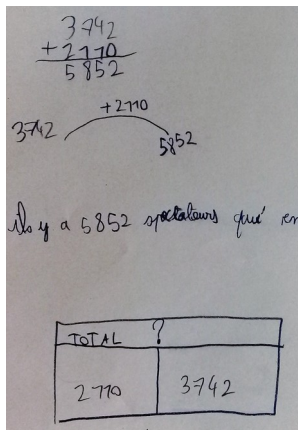 3742
+ 2110
5852
+2110
3742
5852
ils y a 5852 spectateurs qui en
TOTAL ?
2110 3742